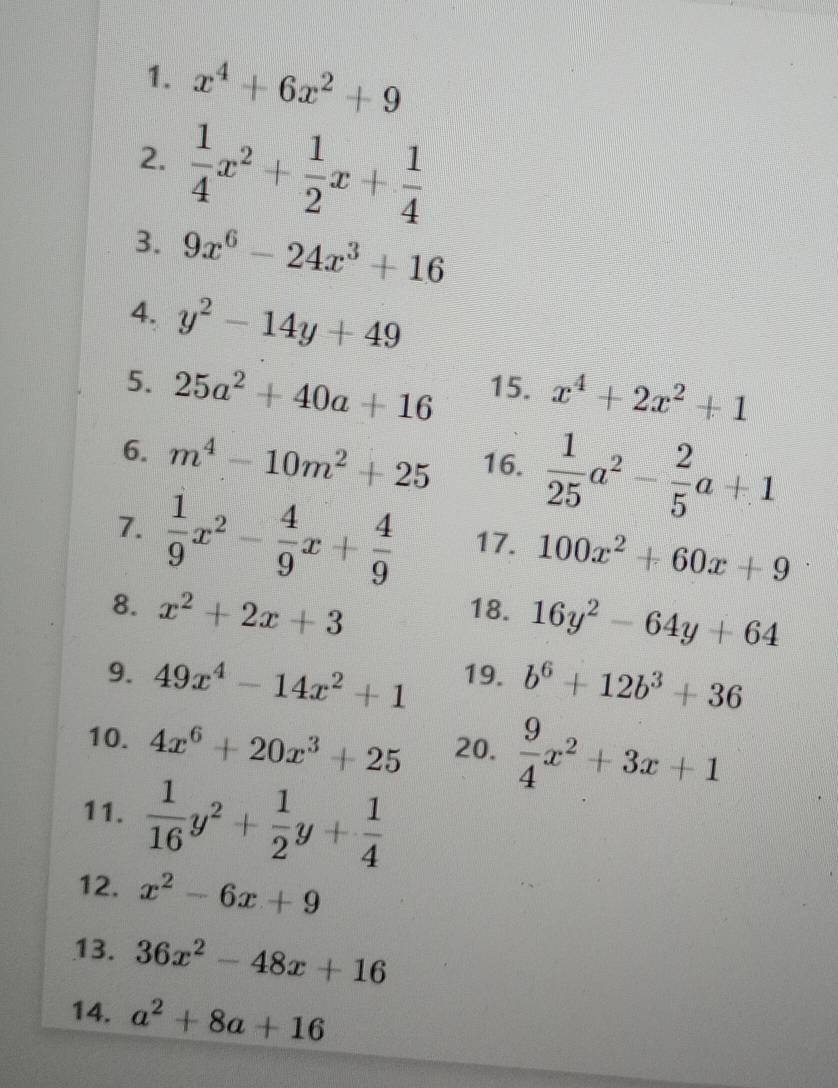 1. x⁴ + 6x² + 9
2. \frac{1}{4}x² + \frac{1}{2}x + \frac{1}{4}
3. 9x⁶ − 24x³ + 16
4. y² − 14y + 49
5. 25a² + 40a + 16
6. m⁴ − 10m² + 25
7. \frac{1}{9}x² − \frac{4}{9}x + \frac{4}{9}
8. x² + 2x + 3
9. 49x⁴ − 14x² + 1
10. 4x⁶ + 20x³ + 25
11. \frac{1}{16}y² + \frac{1}{2}y + \frac{1}{4}
12. x² − 6x + 9
13. 36x² − 48x + 16
14. a² + 8a + 16
15. x⁴ + 2x² + 1
16. \frac{1}{25}a² − \frac{2}{5}a + 1
17. 100x² + 60x + 9
18. 16y² − 64y + 64
19. b⁶ + 12b³ + 36
20. \frac{9}{4}x² + 3x + 1